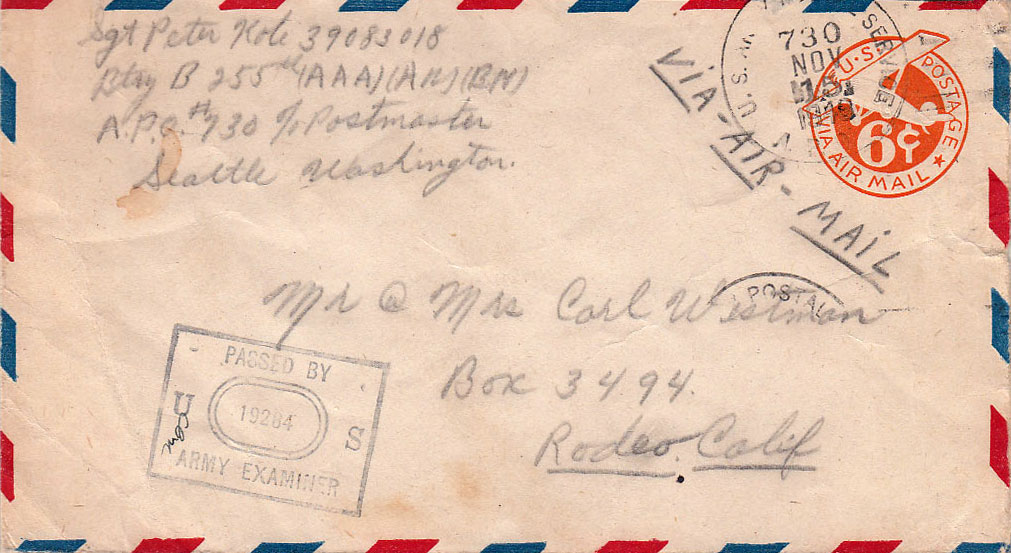 Sgt Peter Kole 39083018
Btry B 255th (AAA)(AW)(BN)
A.P.O. #730 c/o Postmaster
Seattle Washington.
U.S. SERVICE
730
NOV
15
U.S. POSTAGE
6¢
VIA AIR MAIL
VIA - AIR - MAIL
POSTAL
Mr & Mrs Carl Westman
Box 3494.
Rodeo. Calif
PASSED BY
U 19284 S
ARMY EXAMINER